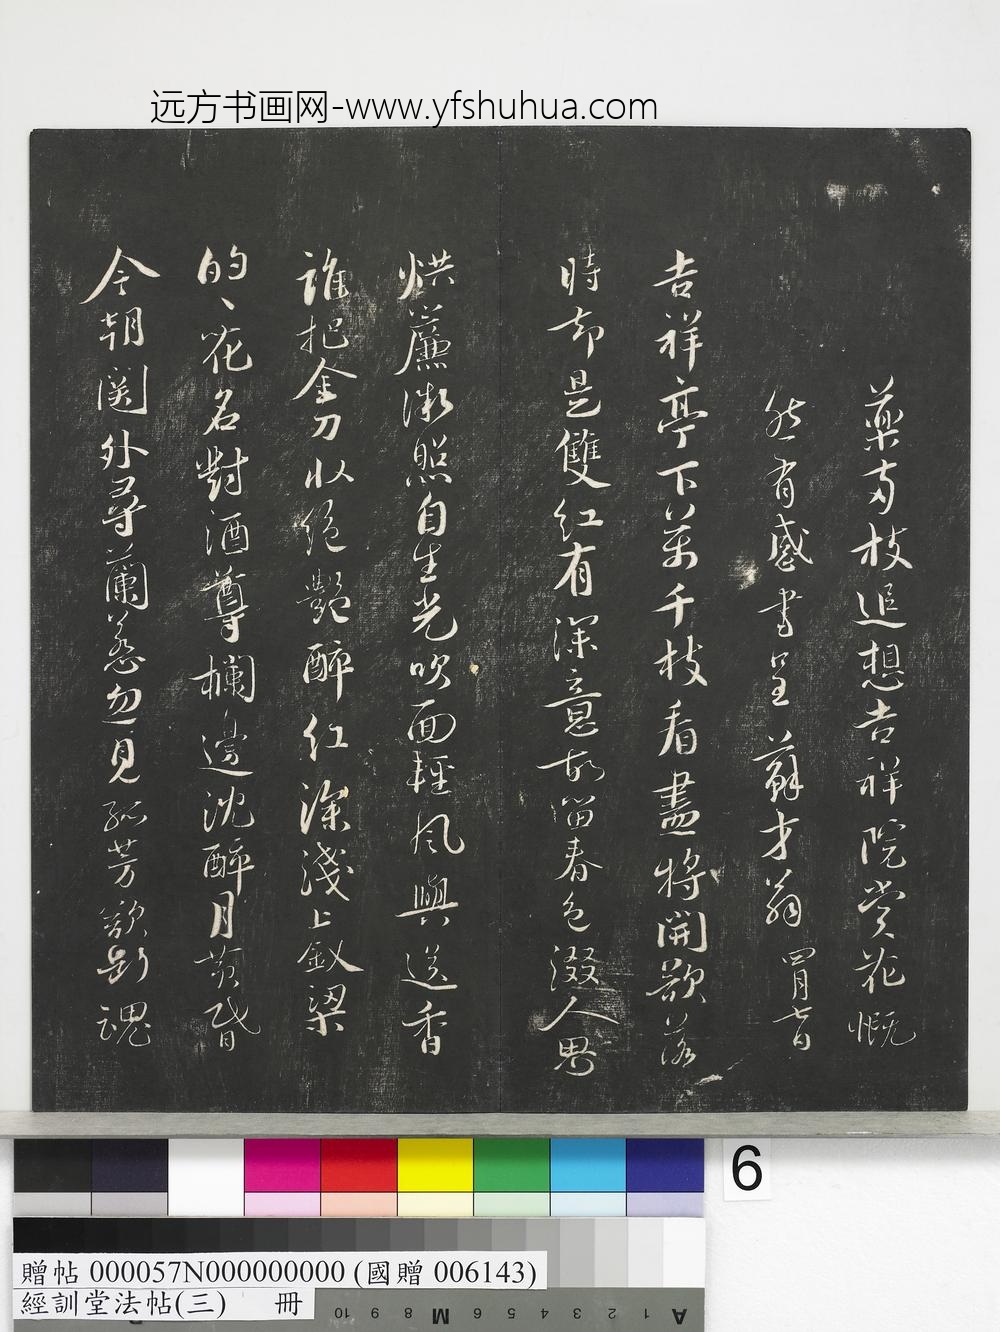 远方书画网-www.yfshuhua.com
藥兩枝追想吉祥院賞花慨
然有感書呈蘇才翁四月七日
吉祥亭下萬千枝看盡將開欲落
時却是雙紅有深意故留春色綴人思
烘簾微照自生光吹面輕風與送香
誰把金刀收絕艷醉紅深淺上釵梁
的〻花名對酒尊欄邊沈醉月黃昏
今朝関外尋蘭蕙忽見孤芳欲斷魂
6
贈帖 000057N000000000 (國贈 006143)
經訓堂法帖(三) 冊
10 9 8 M 6 5 4 3 2 1 A